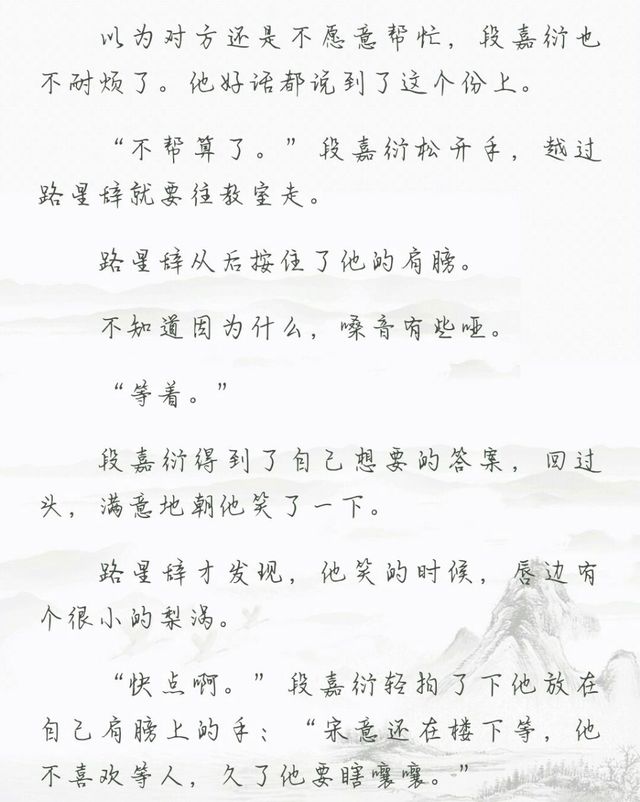 以为对方还是不愿意帮忙，段嘉衍也
不耐烦了。他好话都说到了这个份上。
“不帮算了。”段嘉衍松开手，越过
路星辞就要往教室走。
路星辞从后按住了他的肩膀。
不知道因为什么，嗓音有些哑。
“等着。”
段嘉衍得到了自己想要的答案，回过
头，满意地朝他笑了一下。
路星辞才发现，他笑的时候，唇边有
个很小的梨涡。
“快点啊。”段嘉衍轻拍了下他放在
自己肩膀上的手；“宋意还在楼下等，他
不喜欢等人，久了他要瞎嚷嚷。”